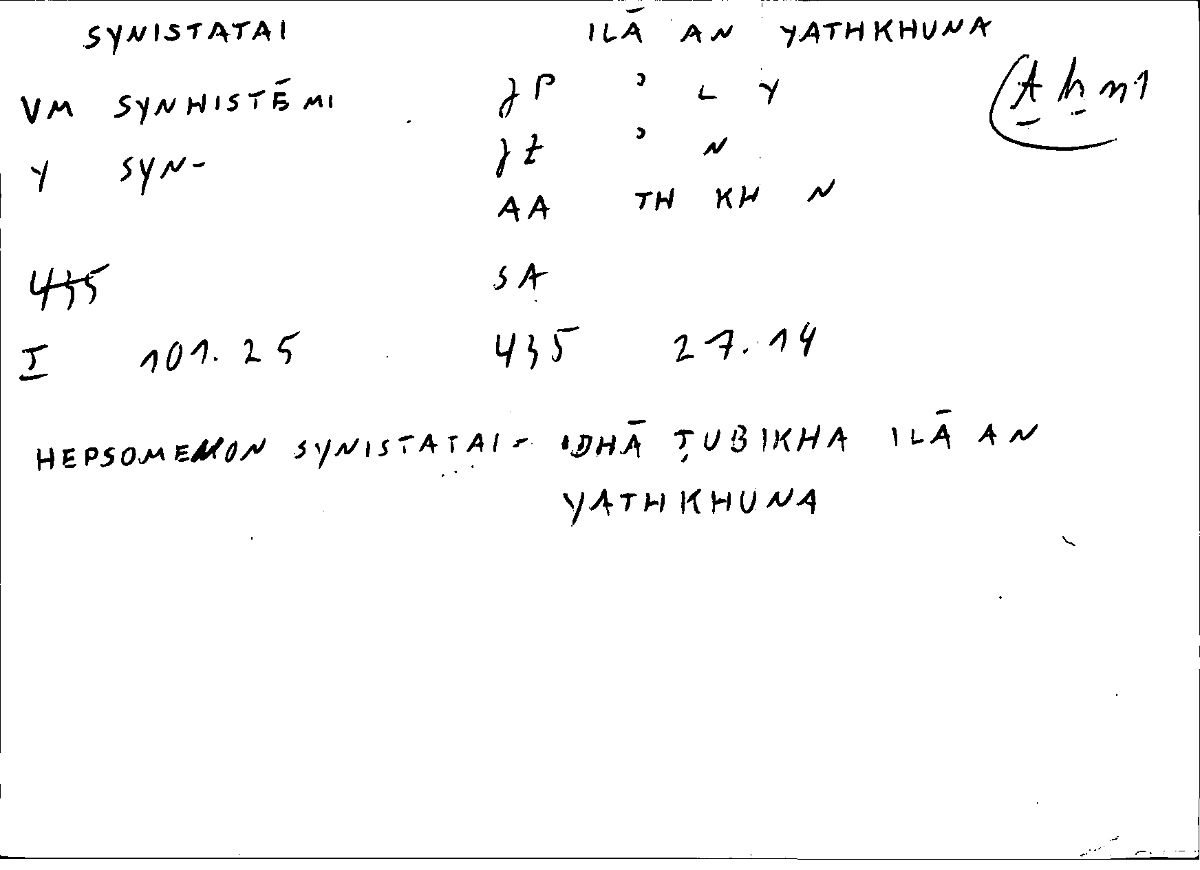 SYNISTATAI ILĀ AN YATHKHUNA
VM SYNHISTĒMI JP ʾ L Y
Y SYN- JŁ ʾ N
AA TH KH N
435 SA
I 101.25 435 27.14
HEPSOMENON SYNISTATAI - IDHĀ ṬUBIKHA ILĀ AN
YATHKHUNA